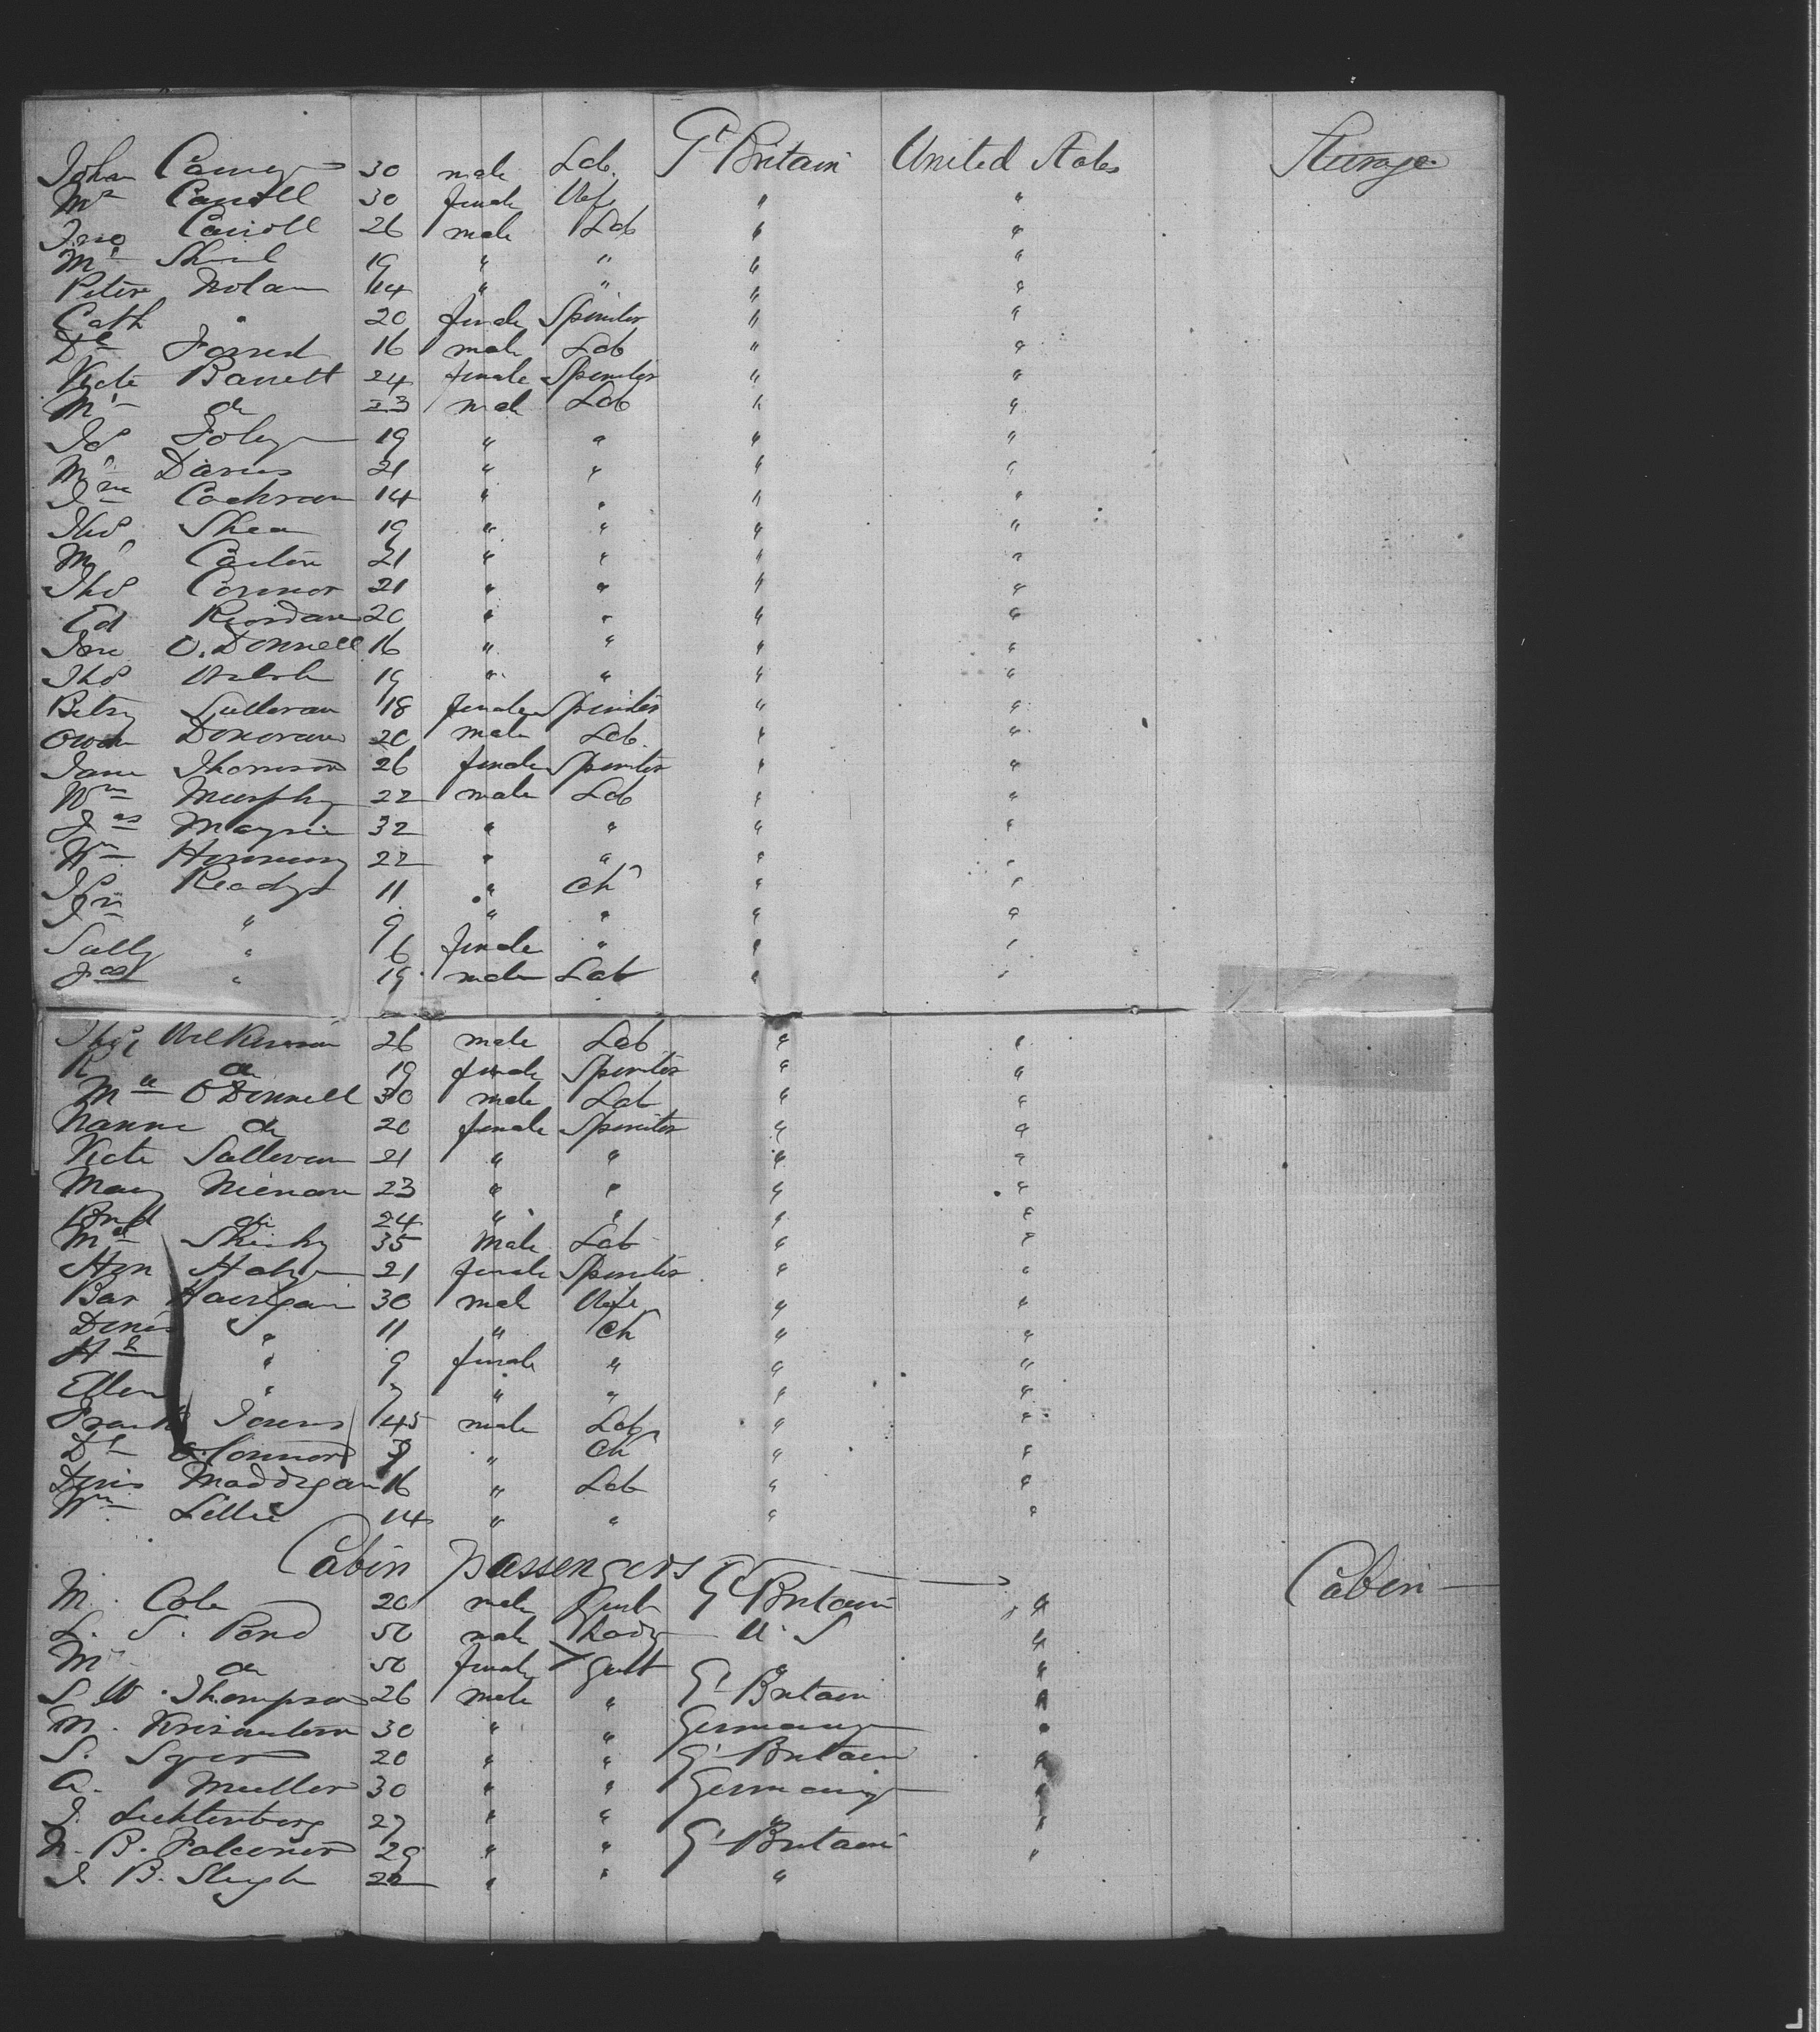 John Carney 30 male Lab. Gt Britain United States Steerage
Mrs Carroll 30 female Wife " "
Jno Carroll 26 male Lab " "
Ml 19 " " " "
Peter Nolan 14 " " " "
Cath " 20 female Spinster " "
Dl Forrest 16 male Lab " "
Kate Barrett 24 female Spinster " "
Ml do 23 male Lab " "
Jas Foley 19 " " " "
Ml Davis 21 " " " "
Jno Cochran 14 " " " "
Thos Shea 19 " " " "
Ml 21 " " " "
Thos Connor 21 " " " "
Ed Riordan 20 " " " "
Jno O.Donnell 16 " " " "
Thos Walsh 19 " " " "
Betsy Sullivan 18 female Spinster " "
Owen Donovan 20 male Lab. " "
Jane Thomson 26 female Spinster " "
Wm Murphy 22 male Lab " "
Jas 32 " " " "
Wm 22 " " " "
Ready 11 " Ch " "
Jno " 9 " " " "
Sally " 6 female " " "
Jas " 19 male Lab " "
Thos Wilkinson 26 male Lab " "
R do 19 female Spinster " "
Ml O'Donnell 30 male Lab " "
do 20 female Spinster " "
Kate Sullivan 21 " " " "
Mary 23 " " " "
do 24 " " " "
Ml Sheehy 35 Male Lab " "
Hon 21 female Spinster " "
Bar 30 male Wife " "
Denis " 11 " Ch " "
" 9 female " " "
Ellen " 7 " " " "
Frank 45 male Lab " "
Dl O.Connor " Ch " "
Denis Maddigan 16 " Lab " "
Wm 14 " " " "
Cabin passengers
M. Cole 20 male Gent Gt Britain " Cabin
L. S. Pond 50 male Lady U. S "
M do 50 female Gent " "
S. W. Thompson 26 male " Gt Britain "
M. 30 " " Germany "
S. 20 " " Gt Britain "
A. Muller 30 " " Germany "
J. Lichtenberg 27 " " " "
B. Falconer 29 " " Gt Britain "
J. B. Sleigh " " " "